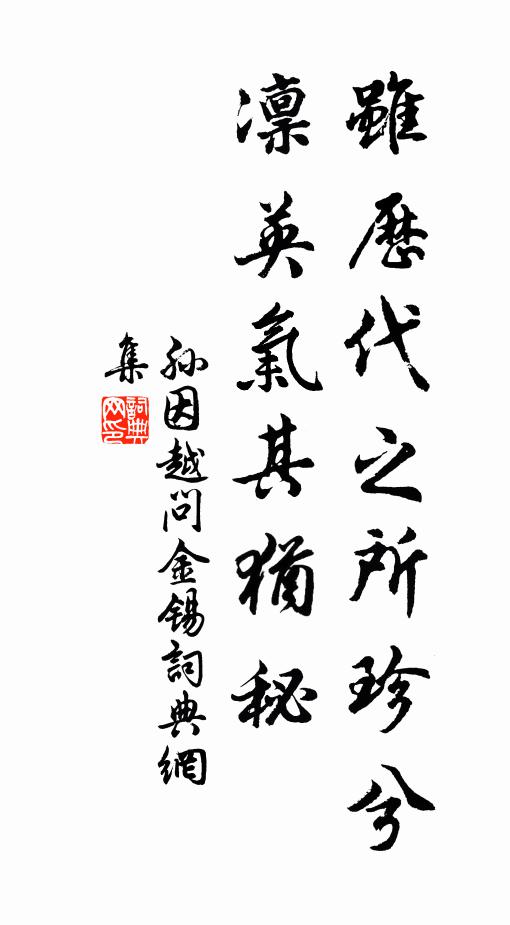 雖歷代之所珍兮
凜英氣其猶秘
孫因越問金錫詞典網
集
詞典
网印